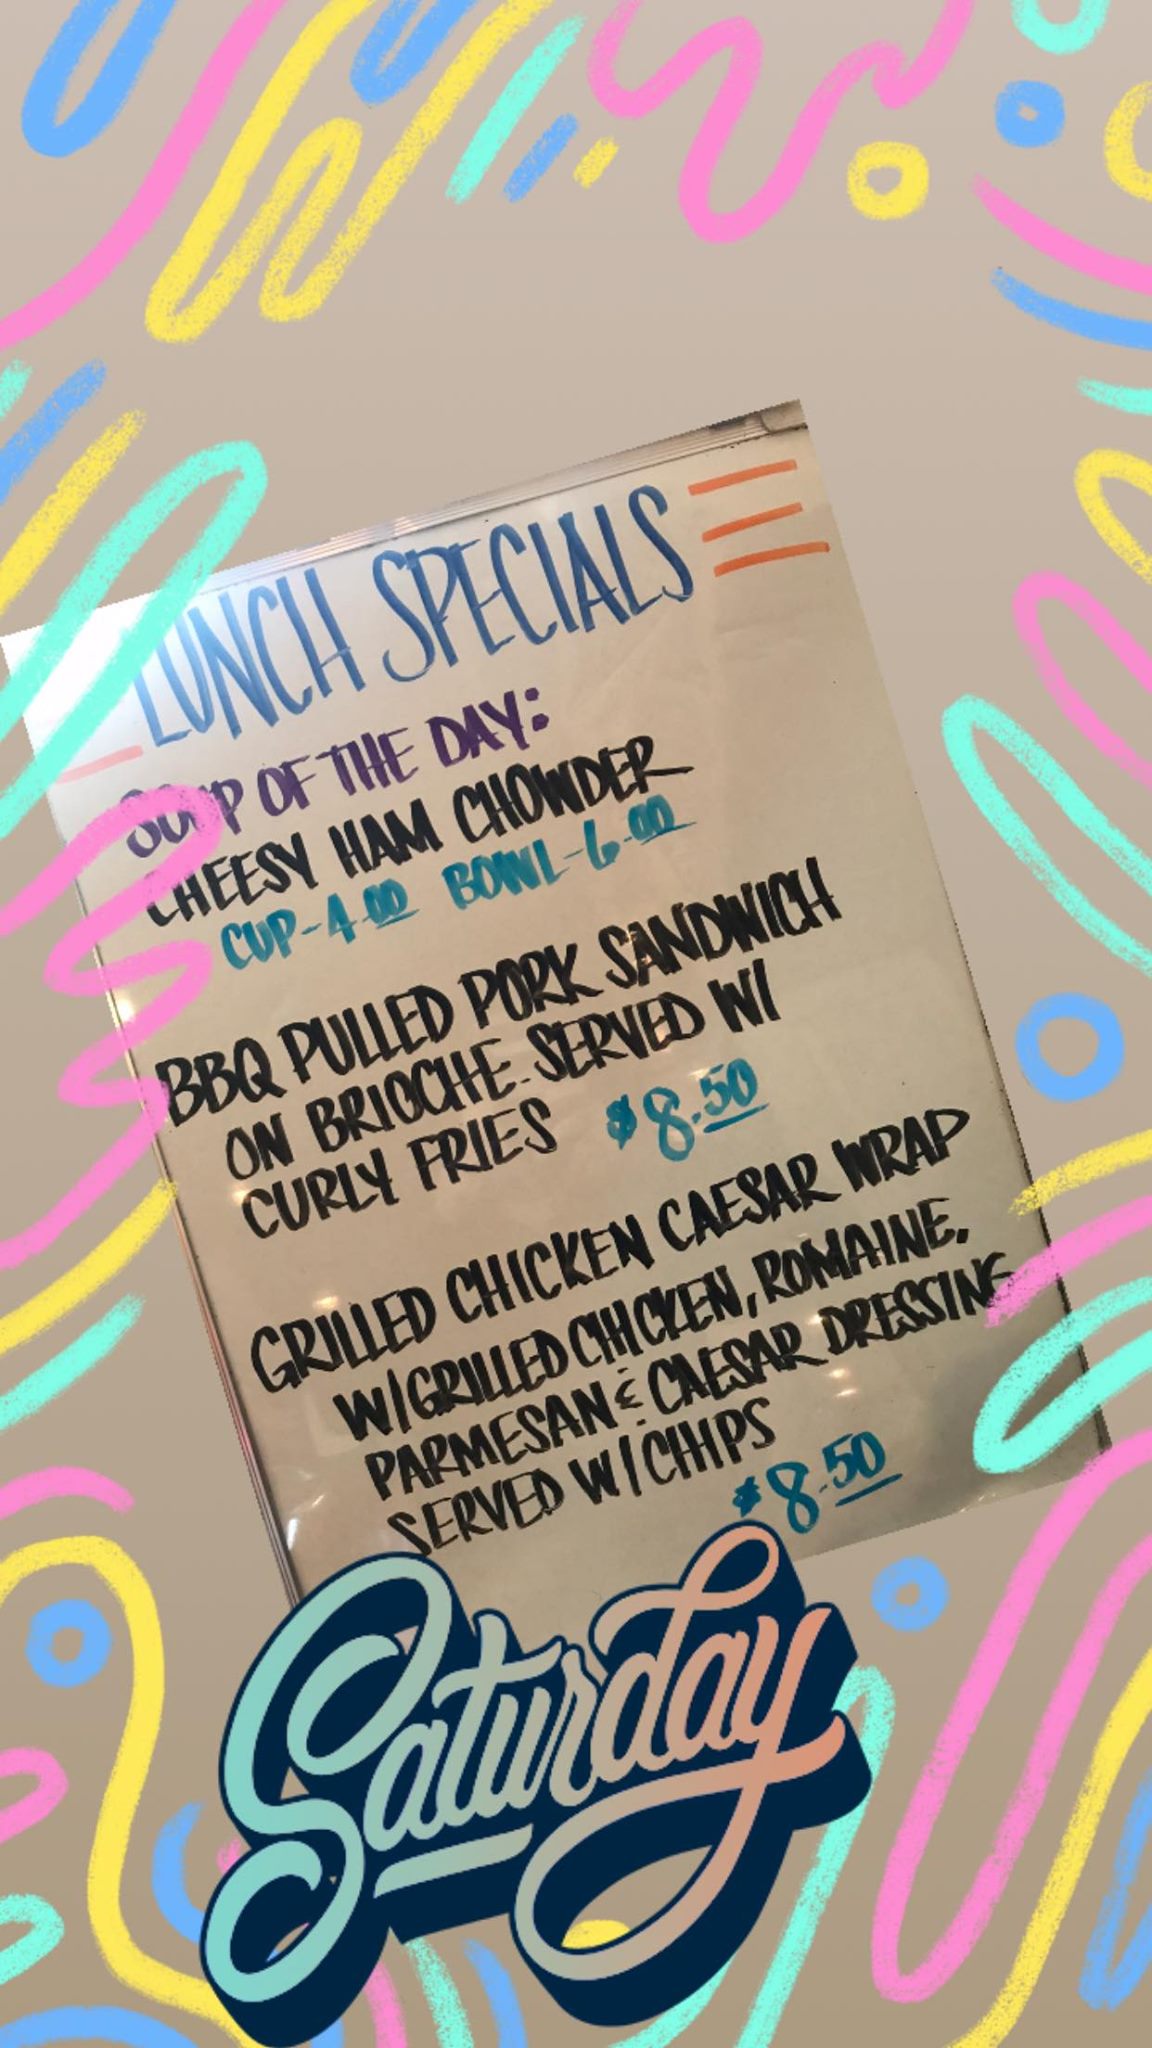 LUNCH SPECIALS
SOUP OF THE DAY:
CHEESY HAM CHOWDER
CUP-4.00 BOWL-6.00
BBQ PULLED PORK SANDWICH
ON BRIOCHE. SERVED W/
CURLY FRIES $8.50
GRILLED CHICKEN CAESAR WRAP
W/GRILLED CHICKEN, ROMAINE,
PARMESAN & CAESAR DRESSING
SERVED W/CHIPS
$8.50
Saturday